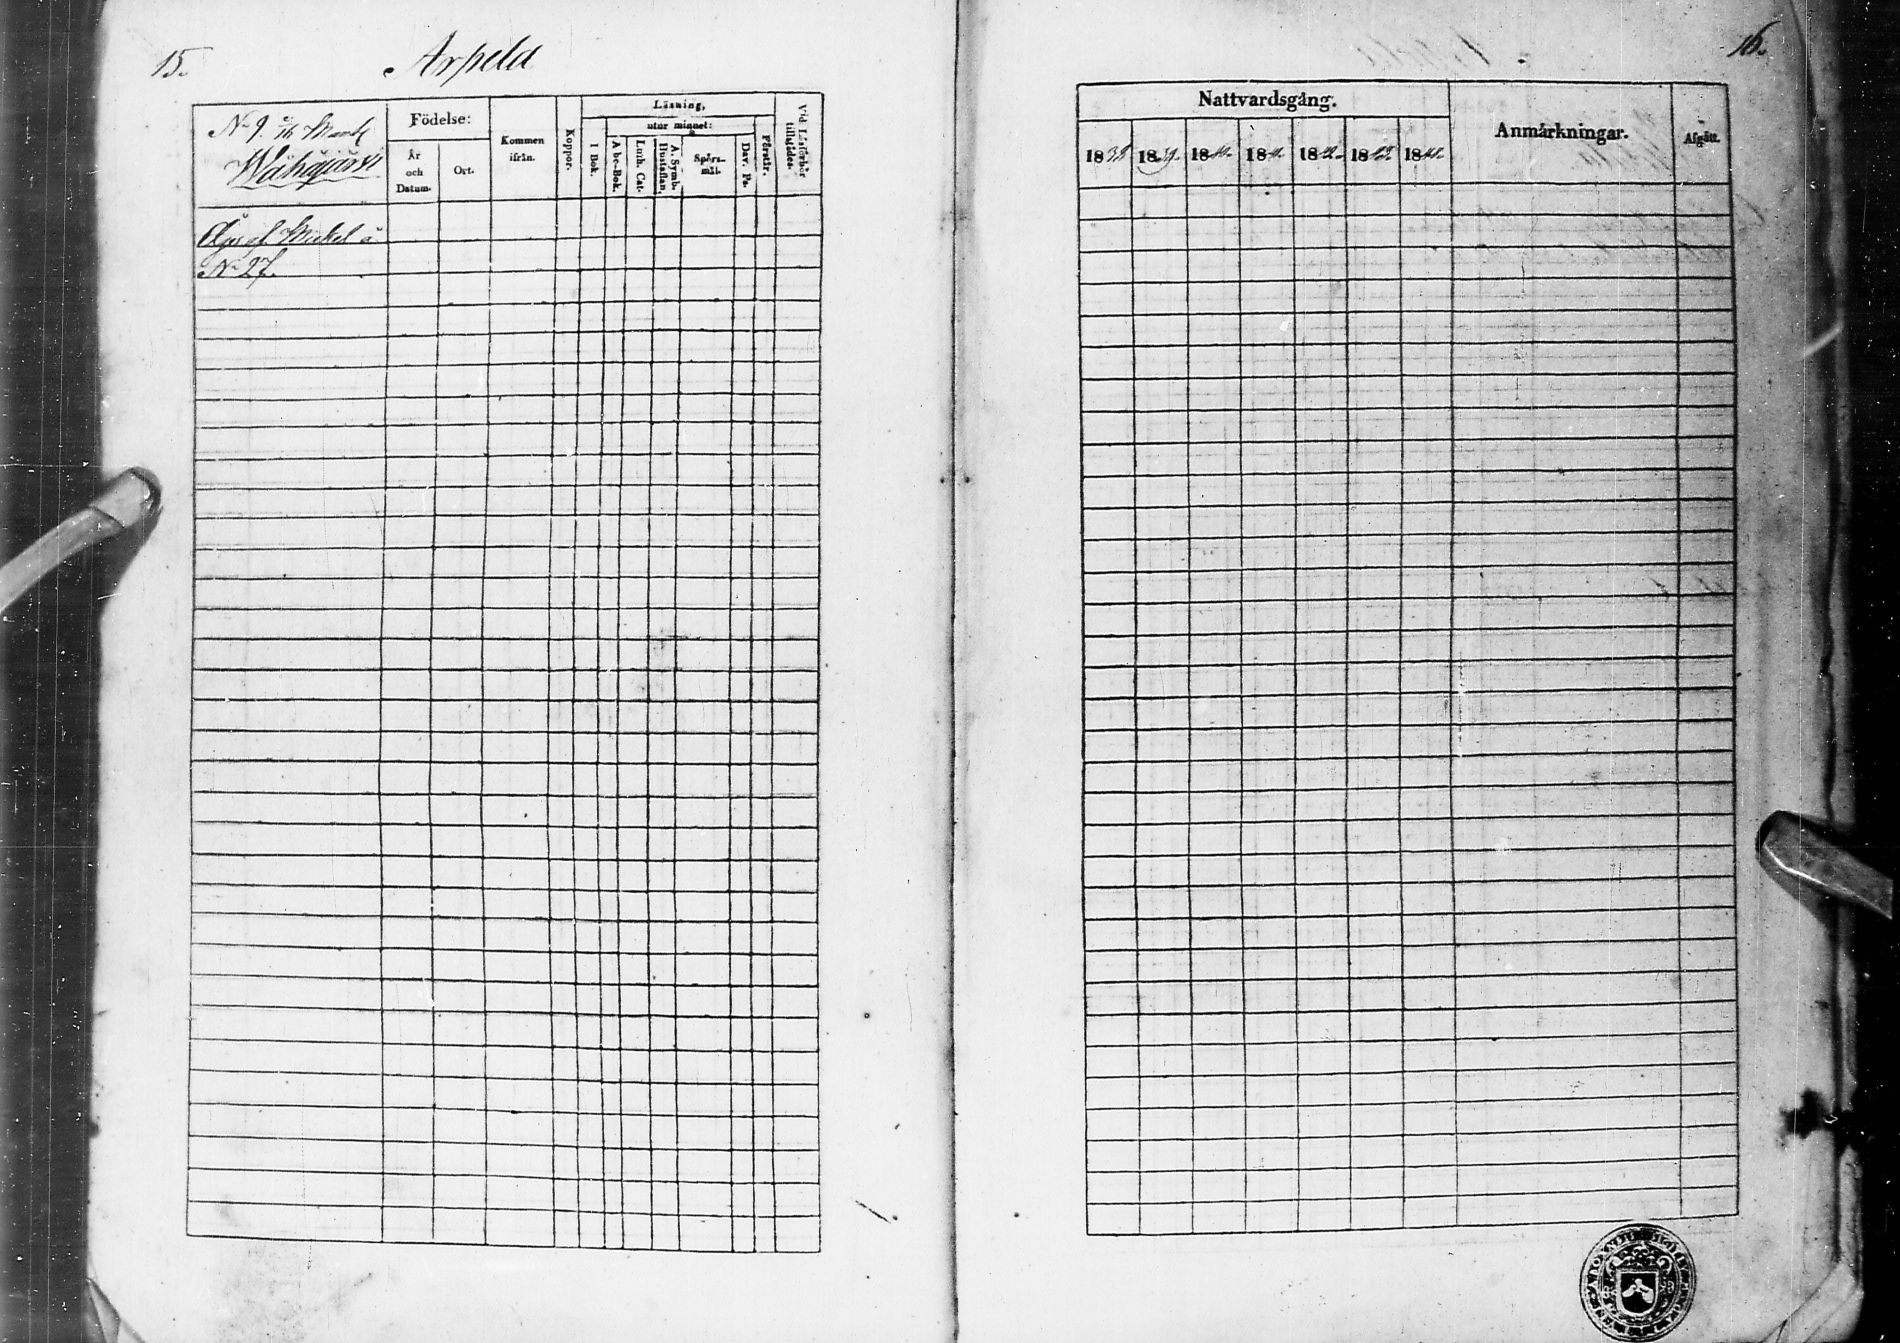 15.
Arpela
N 9.
Födelse:
År
och
Datum.
Ort.
Kommen
ifrån.
Koppor.
Läsning,
I Bok.
utur minnet:
A bc-Bok.
Luth. Cat.
A. Symb.
Hustaflan.
Spörs-
mål.
Dav. Ps.
Förstår.
Vid Läsförhör
tillstädes.
af Mickel å
N 27.
16.
Nattvardsgång.
1838 1839. 1840. 1841. 1842. 1843. 1844.
Anmärkningar.
Afgått.